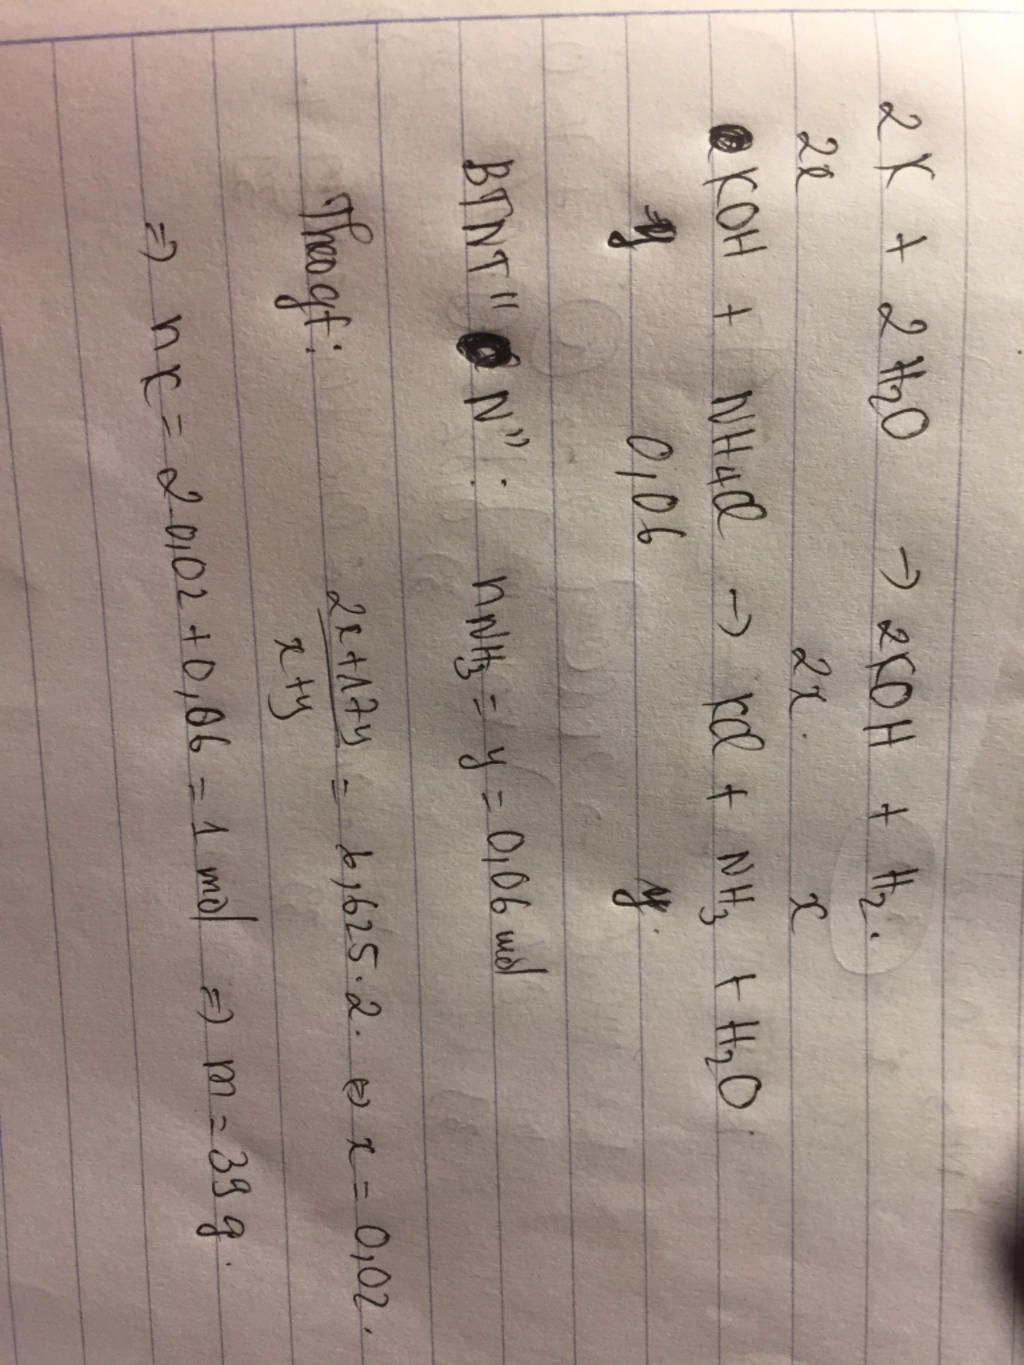 2K + 2H₂O → 2KOH + H₂.
2x 2x. x
KOH + NH4Cl → KCl + NH₃ + H₂O.
y 0,06 y.
BTNT " N" : nNH₃ = y = 0,06 mol
Theo gt: (2x+17y)/(x+y) = 6,625.2. ⇔ x = 0,02.
=) nK = 2.0,02 + 0,06 = 1 mol =) m = 39 g.